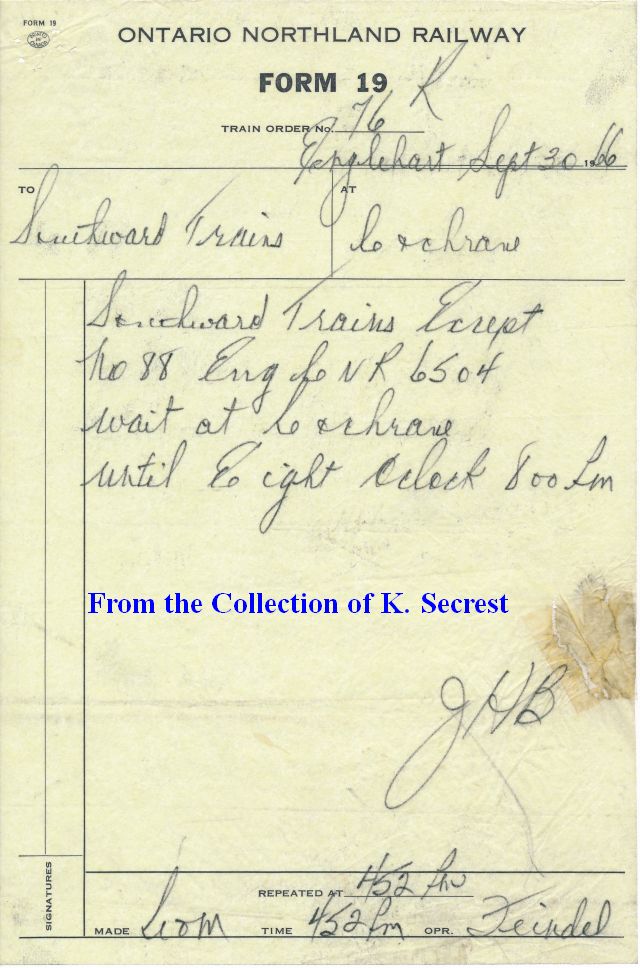 FORM 19
ONTARIO NORTHLAND RAILWAY
FORM 19
TRAIN ORDER No. 76 R
Englehart Sept 30 1966
TO AT
Southward Trains Cochrane
Southward Trains Except
No 88 Eng CNR 6504
wait at Cochrane
until Eight Oclock 800 Pm
From the Collection of K. Secrest
JHB
SIGNATURES
REPEATED AT 452 Pm
MADE Com TIME 452 Pm OPR. Feindel